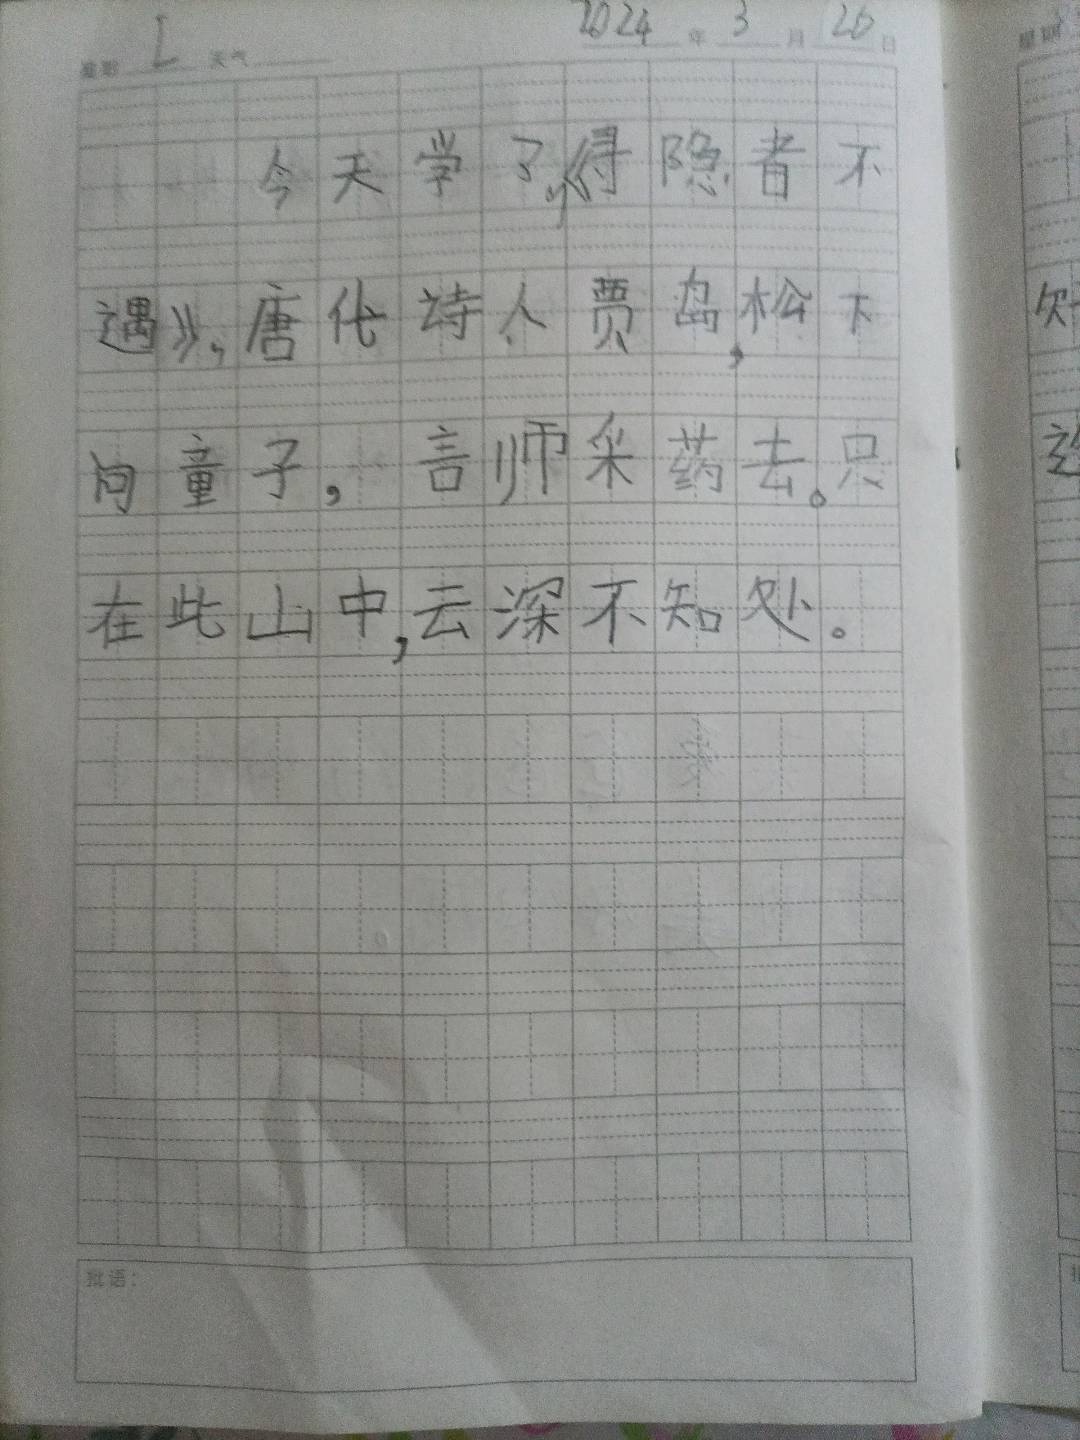 星期 天气 2024 年 3 月 26 日
今天学了,《得隐者不
遇》,唐代诗人贾岛,松下
问童子,言师采药去。只
在此山中,云深不知处。
批语: